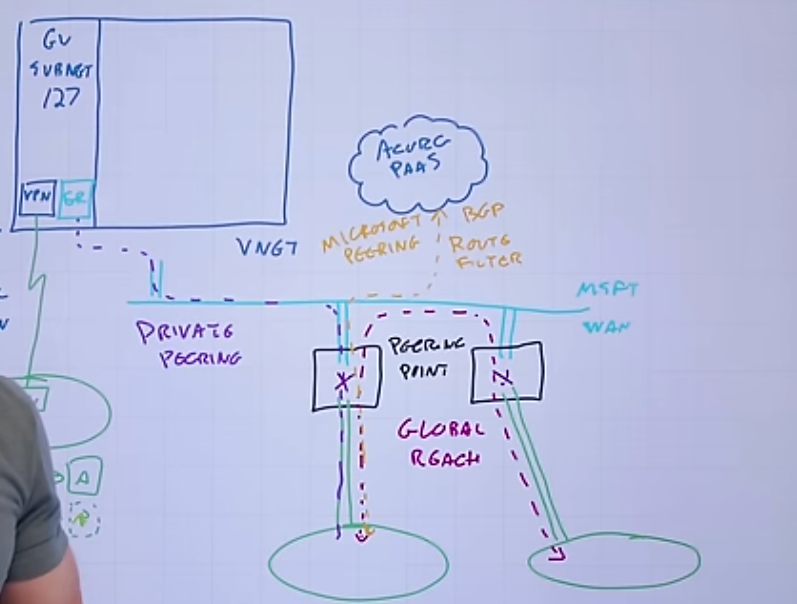 GW
SUBNET
/27
VPN
ER
VNET
AZURE
PAAS
MICROSOFT
PEERING
BGP
ROUTE
FILTER
MSFT
WAN
PRIVATE
PEERING
PEERING
POINT
GLOBAL
REACH
A